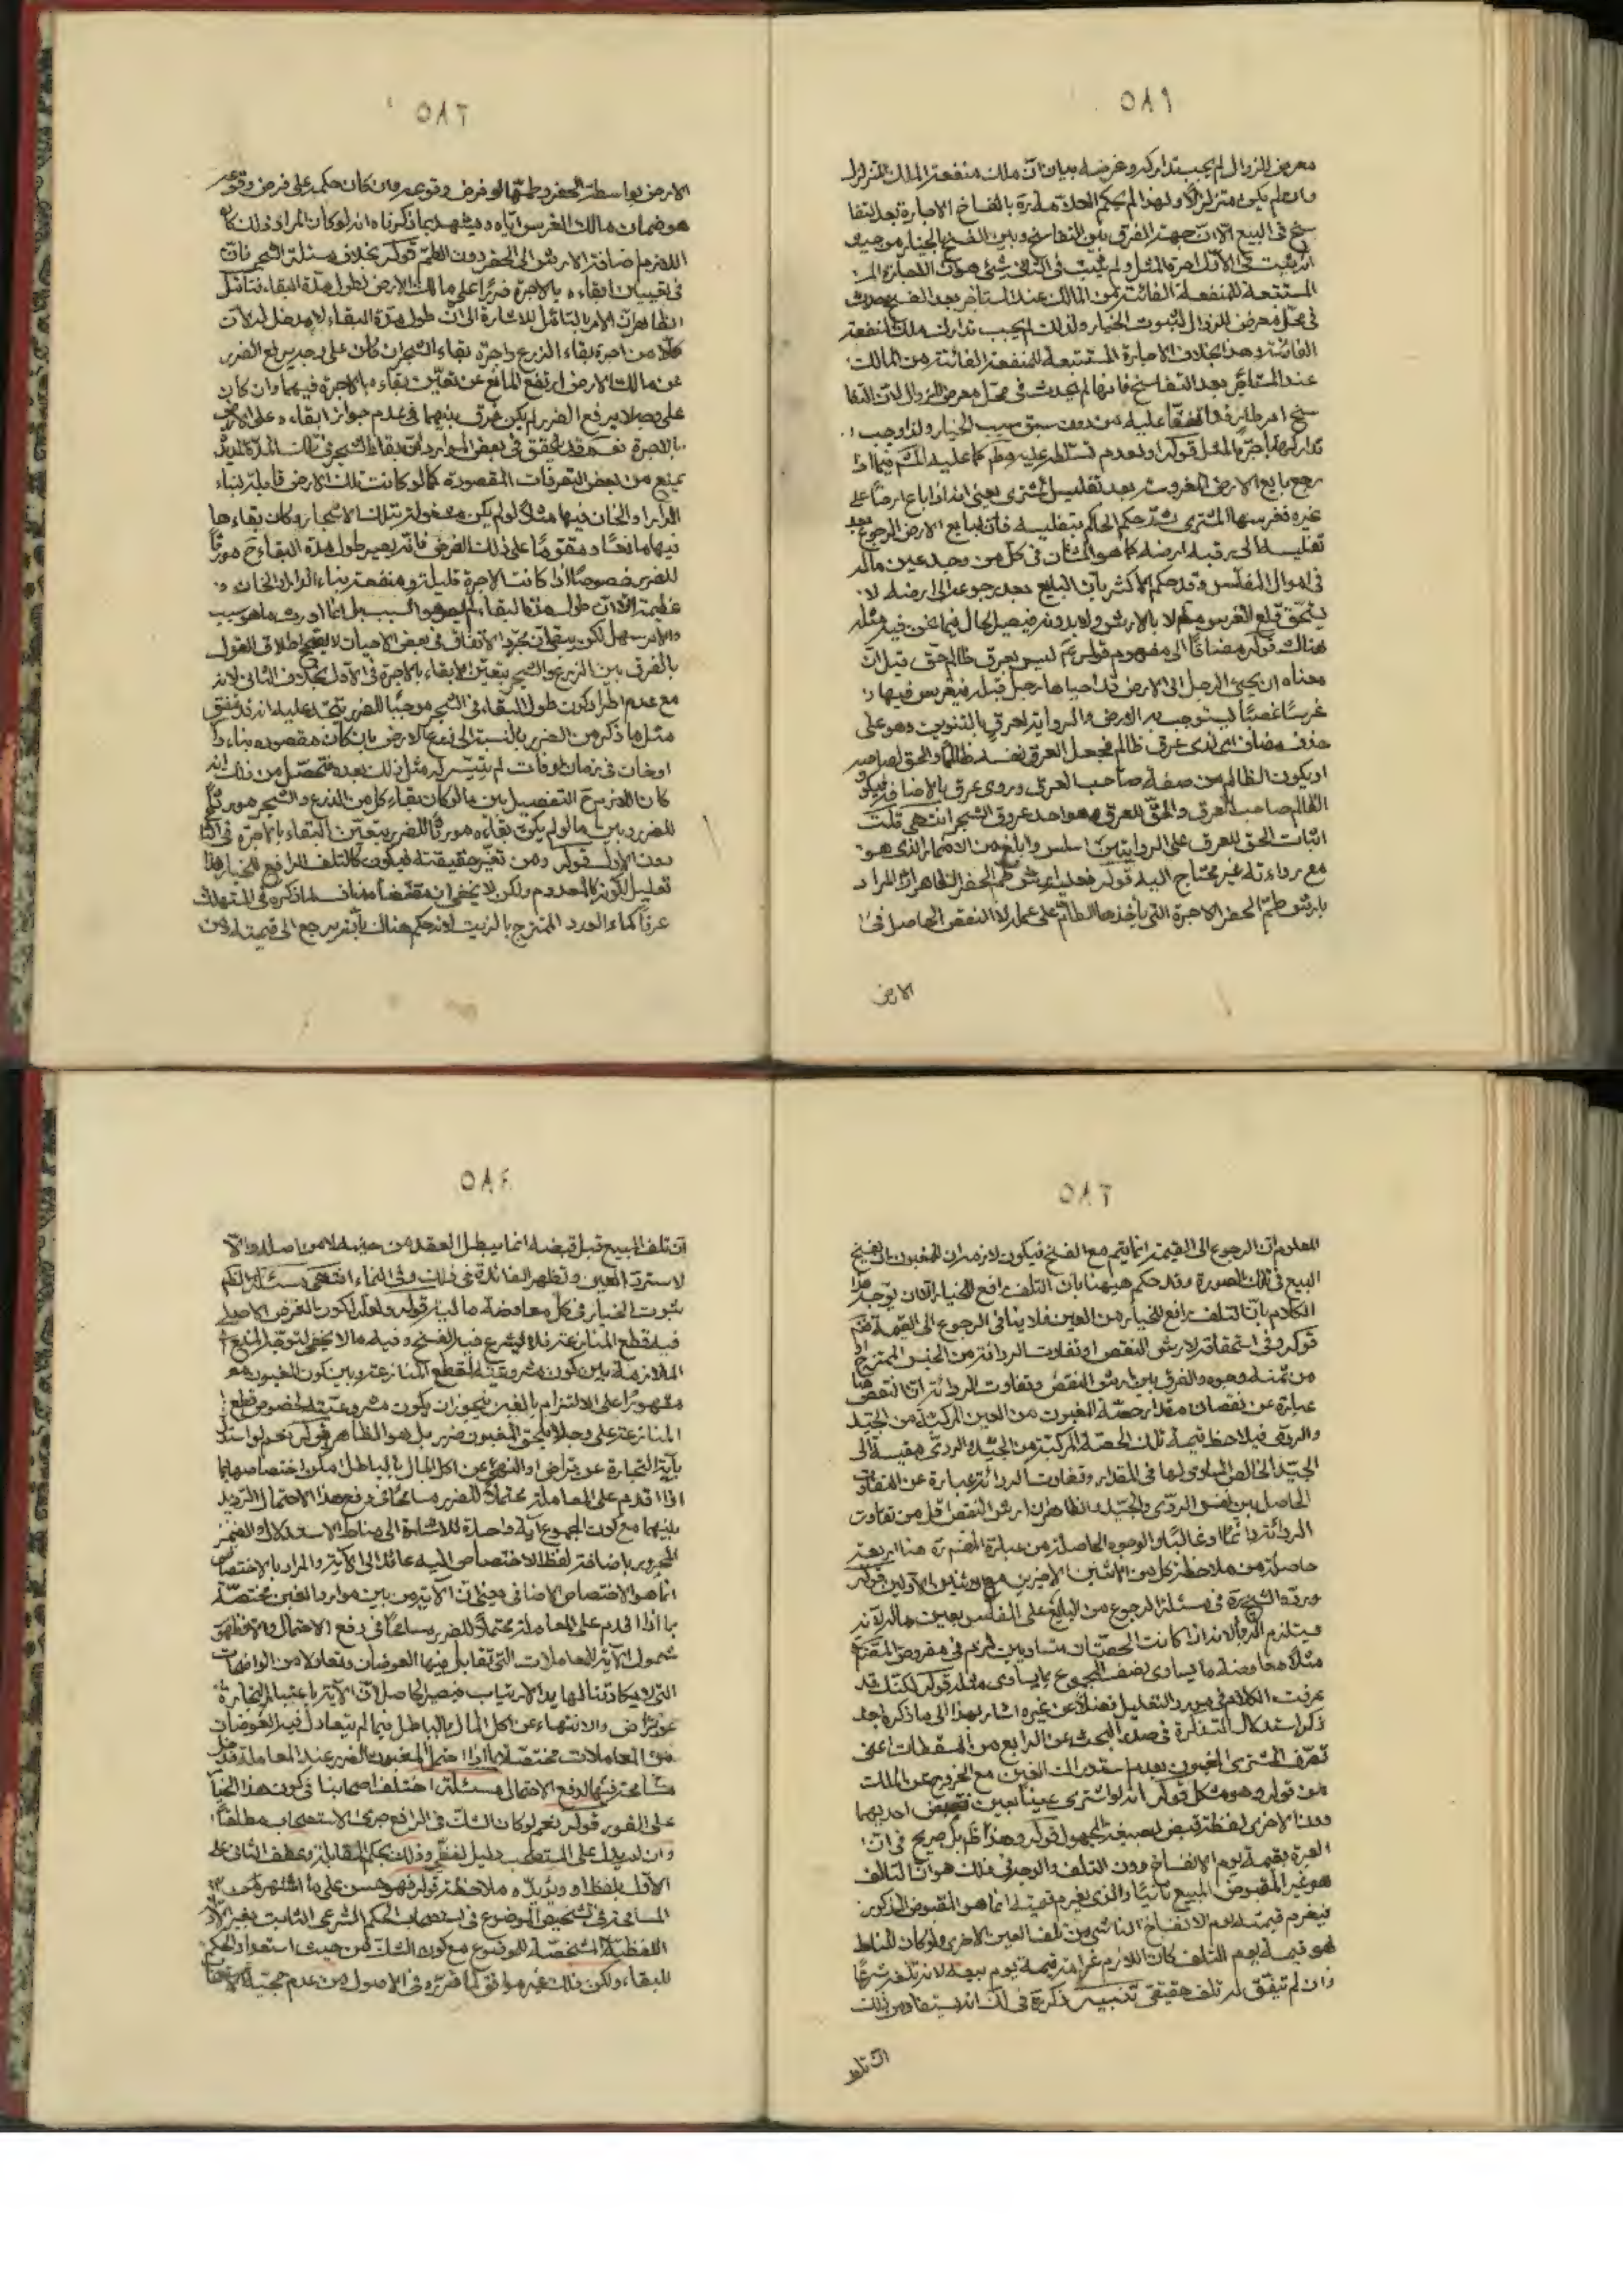 ٥٨١
معرض الزوال لم يجب تداركه وغرضه بيان ان ملك منفعة الملك المتزلزل
وان لم يكن متزلزلا ولهذا لم يحكم العلامة ره بانفساخ الاجارة بعد التفا
سخ في البيع الا ان جهة الفرق بين التفاسخ وبين الفسخ بالخيار من حيث
المستتبعة للمنفعة الفائتة من المالك عند المستاجر بعد الفسخ حدثت
في محل معرض للزوال لثبوت الخيار ولذلك لم يجب تدارك ملك المنفعة
الفائتة وهذا بخلاف الاجارة المستتبعة للمنفعة الفائتة من المالك
عند المستاجر بعد التفاسخ فانها لم تحدث في محل معرض الزوال لان التفا
سخ امر طار اتفقا عليه من دون سبق سبب الخيار ولذا وجب
تداركها باجرة المثل قوله ولعدم تسلطه عليه كما عليه فيما اذا
رجع بايع الارض المغروسة بعد تفليس المشتري يعني انه اذا باع ارضا على
غيره فغرسها المشتري ثم حكم الحاكم بتفليسه فان لبايع الارض الرجوع بعد
تفليسه الى رقبة ارضه كما هو الشان في كل من وجد عين ماله
في اموال المفلس وقد حكم الاكثر بان البايع بعد رجوعه الى ارضه لا
يستحق قلع الغرس لا بالارش ولا بدونه فيصير الحال فيما نحن فيه مثله
هناك قوله مضافا الى مفهوم قوله ليس لعرق ظالم حق قيل ان
معناه ان يجيئ الرجل الى الارض قد احياها رجل قبله فيغرس فيها
غرسا غصبا ليستوجب به الارض والرواية لعرق بالتنوين وهو على
حذف مضاف اي لذي عرق ظالم فجعل العرق نفسه ظالما والحق لصاحبه
او يكون الظالم من صفة صاحب العرق وروي عرق بالاضافة فيكو
الظالم صاحب العرق والحق للعرق وهو احد عروق الشجر انتهى قلت
اثبات الحق للعرق على الروايتين اسلس وابلغ من الاضمار الذي هو
مع رداءته غير محتاج اليه قوله فعليه ارش طم الحفر الظاهر ان المراد
بارش طم الحفر الاجرة التي ياخذها الطام على عمله لا النقص الحاصل في
الارض
٥٨٢
الارض بواسطة الحفر وطمها لو فرض وقوعه وان كان حكمه على فرض وقوعه
هو ضمان مالك الغرس اياه ويشهد بما ذكرناه انه لو كان المراد ذلك كان
اللازم اضافة الارش الى الحفر دون الطم قوله بخلاف مسئلة الشجر فان
في تعيين ابقاءه بالاجرة ضررا على مالك الارض لطول مدة البقاء فتامل
الظاهر ان الامر بالتامل للاشارة الى ان طول مدة البقاء لا مدخل له لان
كلا من اجرة بقاء الزرع واجرة بقاء الشجر ان كان على وجه يرتفع الضرر
عن مالك الارض ارتفع المانع عن تعين بقاءه بالاجرة فيهما وان كان
على وجه لا يرفع الضرر لم يكن فرق بينهما في عدم جواز ابقاءه على الارض
بالاجرة نعم قد يتحقق في بعض الموارد ان بقاء الشجر في تلك المدة المديدة
يمنع من بعض التصرفات المقصودة كما لو كانت تلك الارض قابلة لبناء
الدار او الخان فيها مثلا لو لم يكن مشغولة بتلك الاشجار وكان بقاءها
فيها مانعا ومفوتا على ذلك الغرض فانه يصير طول مدة البقاء ح مورثا
للضرر خصوصا اذا كانت الاجرة قليلة ومنفعة بناء الدار او الخان
عظيمة الا ان طول مدة البقاء لم يصر هو السبب بل انما اورث ما هو سبب
والامر سهل لكن يبقى ان مجرد الاتفاق في بعض الاحيان لا يصحح اطلاق القول
بالفرق بين الزرع والشجر بتعين الابقاء بالاجرة في الاول بخلاف الثاني لانه
مع عدم اطراد كون طول البقاء في الشجر موجبا للضرر يتجه عليه انه قد يتفق
مثل ما ذكر من الضرر بالنسبة الى زرع الارض بان كان مقصوده بناء دار
او خان في زمان لو فات لم يتيسر له مثل ذلك بعده فتحصل من ذلك انه
كان اللازم ح التفصيل بين ما لو كان بقاء كل من الزرع والشجر مورثا
للضرر وبين ما لو لم يكن بقاءه مورثا للضرر بتعين البقاء بالاجرة في الثا
دون الاول قوله ومن تغير حقيقته فيكون كالتلف الرافع للخيار هذا
تعليل لكونه كالمعدوم ولكن لا يخفى ان مقتضاه مناف لما ذكره في المستهلك
عرفا كماء الورد الممتزج بالزيت لانه حكم هناك بانه يرجع الى قيمته لان
٥٨٣
المعلوم ان الرجوع الى القيمة انما يتم مع الفسخ فيكون لازمه ان للمغبون ان يفسخ
البيع في تلك الصورة وقد حكم هيهنا بان التلف رافع للخيار الا ان يوجه هذا
الكلام بان التلف رافع للخيار من العين فلا ينافي الرجوع الى القيمة
قوله وفي استحقاقه لارش النقص او تفاوت الرداءة من الجنس الممتزج او
من ثمنه وجوه والفرق بين ارش النقص وتفاوت الرداءة ان النقص هنا
عبارة عن نقصان مقدار حصة المغبون من العين المركبة من الجيد
والردي فيلاحظ قيمة تلك الحصة المركبة من الجيد والردي مقيسة الى
الجيد الخالص المساوي لها في المقدار وتفاوت الرداءة عبارة عن التفاوت
الحاصل بين نفس الردي والجيد والظاهر ان ارش النقص اقل من تفاوت
الرداءة دائما او غالبا والوجوه الحاصلة من عبارة المصنف ره هنا اربعة
حاصلة من ملاحظة كل من الاثنين الاخيرين مع الاثنين الاولين قوله
ورده الشيخ ره في مسئلة الرجوع من البايع على المفلس بعين ماله بانه
يستلزم الربا لانه اذا كانت الحصتان متساويتين لزم في مفروض المقام
مثلا معاوضة ما يساوي نصف المجموع بما يساوي مثله قوله لكنك قد
عرفت الكلام في مورد التعليل فضلا عن غيره اشار بهذا الى ما ذكره بعد
ذكر استدلال التذكرة في صدر البحث عن الرابع من المسقطات اعني
تصرف المشتري المغبون بعدم استدراك الغبن مع الخروج عن الملك
من قوله وهو مشكل قوله انه لو اشترى عينا بعين فقبض احديهما
دون الاخرى لفظة قبض بصيغة المجهول قوله وهذا بل صريح في ان
العبرة بقيمة يوم الانفساخ دون التلف والوجه في ذلك هو ان التالف
هو غير المقبوض المبيع ثانيا والذي يغرم قيمته انما هو المقبوض المذكور
فيغرم قيمته يوم الانفساخ الناشي من تلف العين الاخرى ولو كان المناط
هو قيمة يوم التلف كان اللازم غرامة قيمة يوم بيعه لانه تلف شرعا
وان لم يتفق له تلف حقيقي تنبيه ذكر في لك انه يستفاد من ذلك
ان تلف
٥٨٤
ان تلف المبيع قبل قبضه انما يبطل العقد من حينه لا من اصله والا
لاسترد العين وتظهر الفائدة في ذلك وفي النماء انتهى مسئلة الظاهر
ثبوت الخيار في كل معاوضة مالية قوله ولعله لكون الغرض الاصلي
فيه قطع المنازعة فلا يشرع فيه الفسخ وفيه ما لا يخفى لتوجه المنع
الملازمة بين كون مشروعيته لقطع المنازعة وبين كون المغبون
مقهورا على الالتزام بالغبن فيجوز ان يكون مشروعيته لخصوص قطع
المنازعة على وجه لا يلحق المغبون ضرر بل هو الظاهر قوله نعم لو استدل
باية التجارة عن تراض او النهي عن اكل المال بالباطل امكن اختصاصها بما
اذا اقدم على المعاملة محتملا للضرر مسامحا في دفع هذا الاحتمال الترديد
بينهما مع كون المجموع اية واحدة للاشارة الى مناط الاستدلال والضمير
المجرور باضافة لفظ الاختصاص اليه عائد الى الاية والمراد بالاختصاص
انما هو الاختصاص الاضافي بمعنى ان الاية من بين موارد الغبن مختصة
بما اذا اقدم على المعاملة محتملا للضرر مسامحا في دفع الاحتمال والا فظهور
شمول الاية للمعاملات التي تقابل فيها العوضان وتعادلا من الواضحات
التي لا يكاد تنالها يد الارتياب فيصير الحاصل ان الاية باعتبار التجارة
عن تراض والانتهاء عن اكل المال بالباطل فيما لم يتعادل فيه العوضان
من المعاملات مختصة بما اذا احتمل المغبون الضرر عند المعاملة
مسامحته في دفع الاحتمال مسئلة اختلف اصحابنا في كون هذا الخيار
على الفور قوله نعم لو كان الشك في الرافع جرى الاستصحاب مطلقا
وان لم يدل على المستصحب دليل لفظي وذلك بحكم المقابلة وعطف الثاني على
الاول بلفظ او ويؤيده ملاحظة قوله فهو حسن على ما اشتهر من
المسامحة في تشخيص الموضوع في استصحاب الحكم الشرعي الثابت بغير الادلة
اللفظية المشخصة للموضوع مع كون الشك من حيث استعداد الحكم
للبقاء ولكن ذلك غير موافق لما قرره في الاصول من عدم حجية الاستصحاب